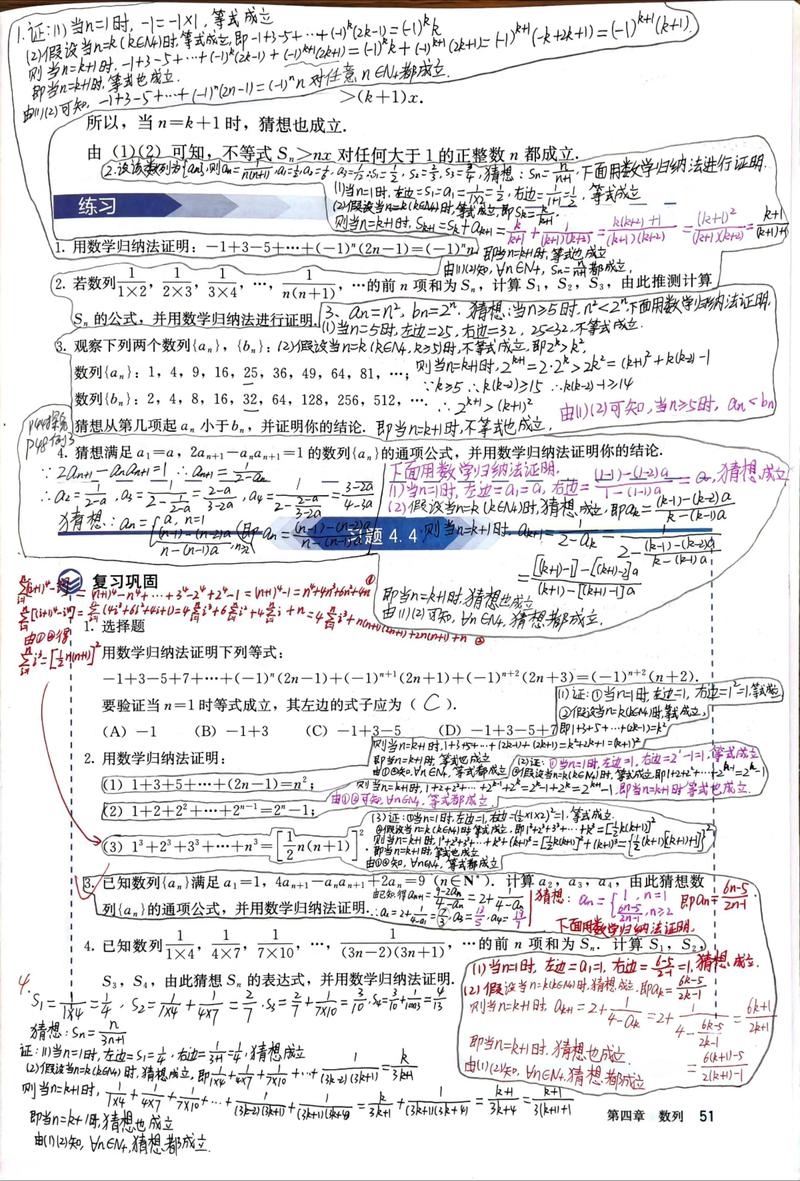 1.证:(1)当n=1时, -1=-1×1, 等式成立
(2)假设当n=k(k∈N+)时,等式成立,即-1+3-5+…+(-1)^k(2k-1)=(-1)^k k
则当n=k+1时, -1+3-5+…+(-1)^k(2k-1)+(-1)^{k+1}(2k+1)=(-1)^k k+(-1)^{k+1}(2k+1)=(-1)^{k+1}(-k+2k+1)=(-1)^{k+1}(k+1).
即当n=k+1时,等式也成立.
由(1)(2)可知, -1+3-5+…+(-1)^n(2n-1)=(-1)^n n 对任意n∈N+都成立.
>(k+1)x.
所以，当 n=k+1 时，猜想也成立.
由（1）（2）可知，不等式 Sₙ>nx 对任何大于 1 的正整数 n 都成立.
2.设该数列为{an},则an=1/n(n+1), 猜想: Sn=n/(n+1), 下面用数学归纳法进行证明.
(1)当n=1时,左边=S1=a1=1/(1×2)=1/2,右边=1/(1+1)=1/2, 等式成立
(2)假设当n=k(k∈N+)时,等式成立,即Sk=k/(k+1).
则当n=k+1时, Sk+1=Sk+ak+1=k/(k+1)+1/(k+1)(k+2)=(k(k+2)+1)/(k+1)(k+2)=(k+1)²/(k+1)(k+2)=(k+1)/((k+1)+1)
即当n=k+1时,等式也成立
由(1)(2)知, ∀n∈N+, Sn=n/(n+1)都成立.
练习
1. 用数学归纳法证明：−1+3−5+⋯+(−1)ⁿ(2n−1)=(−1)ⁿn.
2. 若数列 1/(1×2)，1/(2×3)，1/(3×4)，⋯，1/(n(n+1))，⋯的前 n 项和为 Sₙ，计算 S₁，S₂，S₃，由此推测计算
Sₙ 的公式，并用数学归纳法进行证明.
3、an=n², bn=2^n. 猜想:当n≥5时, n²<2^n,下面用数学归纳法证明.
(1)当n=5时,左边=25,右边=32, 25<32,不等式成立.
3. 观察下列两个数列{aₙ}，{bₙ}：
(2)假设当n=k(k∈N+,k≥5)时,不等式成立,即2^k>k²,
则当n=k+1时, 2^{k+1}=2·2^k>2k²=(k+1)²+k(k-2)-1
数列{aₙ}：1，4，9，16，25，36，49，64，81，⋯；
∵k≥5 ∴k(k-2)≥15 ∴k(k-2)-1≥14
数列{bₙ}：2，4，8，16，32，64，128，256，512，⋯.
∴2^{k+1}>(k+1)²
由(1)(2)可知,当n≥5时, an<bn
猜想从第几项起 aₙ 小于 bₙ，并证明你的结论.
即当n=k+1时,不等式也成立.
P48例3
4. 猜想满足 a₁=a，2aₙ₊₁−aₙaₙ₊₁=1 的数列{aₙ}的通项公式，并用数学归纳法证明你的结论.
∵2an+1-anan+1=1 ∴an+1=1/(2-an)
∴a2=1/(2-a), a3=1/(2-1/(2-a))=(2-a)/(3-2a), a4=1/(2-(2-a)/(3-2a))=(3-2a)/(4-3a)
猜想: an={a, n=1; ((n-1)-(n-2)a)/(n-(n-1)a), n≥2 (即an=((n-1)-(n-2)a)/(n-(n-1)a))
下面用数学归纳法证明.
(1)当n=1时,左边=a1=a,右边=((1-1)-(1-2)a)/(1-(1-1)a)=a,猜想成立
(2)假设当n=k(k∈N+)时,猜想成立,即ak=((k-1)-(k-2)a)/(k-(k-1)a)
则当n=k+1时, ak+1=1/(2-ak)=1/(2-((k-1)-(k-2)a)/(k-(k-1)a))
=([(k+1)-1]-[(k+1)-2]a)/((k+1)-[(k+1)-1]a)
即当n=k+1时,猜想也成立
由(1)(2)可知, ∀n∈N+,猜想都成立.
习题 4.4
复习巩固
=(n+1)^4-n^4+…+3^4-2^4+2^4-1=(n+1)^4-1=n^4+4n³+6n²+4n ①
由①②得
1. 选择题
用数学归纳法证明下列等式：
−1+3−5+7+⋯+(−1)ⁿ(2n−1)+(−1)ⁿ⁺¹(2n+1)+(−1)ⁿ⁺²(2n+3)=(−1)ⁿ⁺²(n+2).
要验证当 n=1 时等式成立，其左边的式子应为（ C ）.
(A) −1 (B) −1+3 (C) −1+3−5 (D) −1+3−5+7
(1)证:①当n=1时,左边=1,右边=1²=1,等式成立
②假设当n=k(k∈N+)时,等式成立,
即1+3+5+…+(2k-1)=k²
则当n=k+1时,1+3+5+…+(2k-1)+(2k+1)=k²+2k+1=(k+1)²
即当n=k+1时,等式也成立
由①②知,∀n∈N+,等式都成立
2. 用数学归纳法证明：
(2)证:①当n=1时,左边=1,右边=2^1-1=1,等式成立
②假设当n=k(k∈N+)时,等式成立,即1+2+2²+…+2^{k-1}=2^k-1
则当n=k+1时,1+2+2²+…+2^{k-1}+2^k=2^k-1+2^k=2^{k+1}-1,即当n=k+1时等式也成立.
由①②可知,∀n∈N+,等式都成立.
(1) 1+3+5+⋯+(2n−1)=n²；
(2) 1+2+2²+⋯+2ⁿ⁻¹=2ⁿ−1；
(3)证:①当n=1时,左边=1,右边=(½×1×2)²=1,等式成立.
②假设当n=k(k∈N+)时,等式成立,即1³+2³+3³+…+k³=[½k(k+1)]²
则当n=k+1时,1³+2³+3³+…+k³+(k+1)³=[½k(k+1)]²+(k+1)³={½(k+1)[(k+1)+1]}²
即当n=k+1时,等式也成立
由①②知,∀n∈N+,等式都成立
(3) 1³+2³+3³+⋯+n³=[½n(n+1)]².
3. 已知数列{aₙ}满足 a₁=1，4aₙ₊₁−aₙaₙ₊₁+2aₙ=9（n∈N*）. 计算 a₂，a₃，a₄，由此猜想数
列{aₙ}的通项公式，并用数学归纳法证明.
由已知得an+1=(9-2an)/(4-an)=2+1/(4-an)
∴a2=2+1/(4-1)=7/3, a3=13/5, a4=19/7
猜想: an={1, n=1; (6n-5)/(2n-1), n≥2 即an=(6n-5)/(2n-1)
下面用数学归纳法证明.
(1)当n=1时,左边=a1=1,右边=(6-5)/(2-1)=1,猜想成立.
(2)假设当n=k(k∈N+)时,猜想成立,即ak=(6k-5)/(2k-1)
则当n=k+1时, ak+1=2+1/(4-ak)=2+1/(4-(6k-5)/(2k-1))=(6k+1)/(2k+1)
=(6(k+1)-5)/(2(k+1)-1)
即当n=k+1时,猜想也成立.
由(1)(2)知,∀n∈N+,猜想都成立
4. 已知数列 1/(1×4)，1/(4×7)，1/(7×10)，⋯，1/((3n−2)(3n+1))，⋯的前 n 项和为 Sₙ. 计算 S₁，S₂，
S₃，S₄，由此猜想 Sₙ 的表达式，并用数学归纳法证明.
4. S1=1/(1×4)=1/4, S2=1/(1×4)+1/(4×7)=2/7, S3=2/7+1/(7×10)=3/10, S4=3/10+1/(10×13)=4/13
猜想: Sn=n/(3n+1)
证:(1)当n=1时,左边=S1=1/4,右边=1/(3+1)=1/4,猜想成立
(2)假设当n=k(k∈N+)时,猜想成立,即1/(1×4)+1/(4×7)+1/(7×10)+…+1/(3k-2)(3k+1)=k/(3k+1)
则当n=k+1时, 1/(1×4)+1/(4×7)+1/(7×10)+…+1/(3k-2)(3k+1)+1/(3k+1)(3k+4)=k/(3k+1)+1/(3k+1)(3k+4)=(k+1)/(3k+4)=(k+1)/(3(k+1)+1)
即当n=k+1时,猜想也成立
由(1)(2)知, ∀n∈N+,猜想都成立.
第四章 数列 51